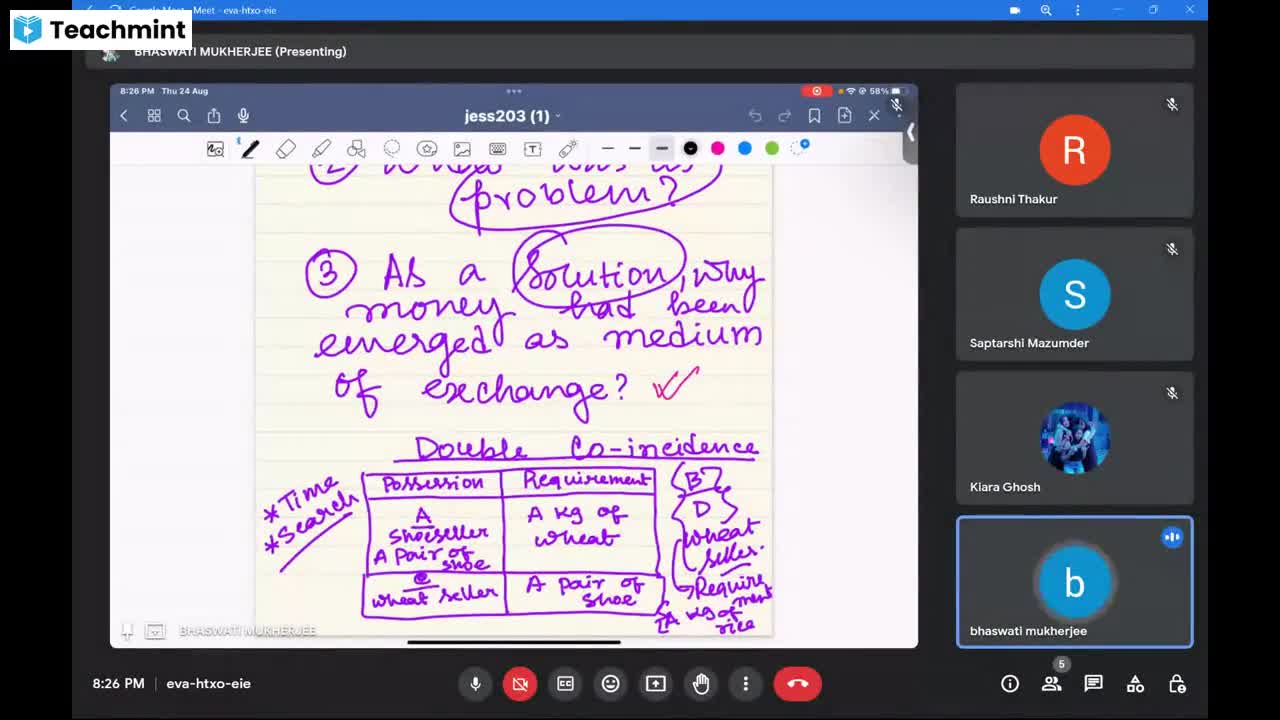 Google Meet - Meet - eva-htxo-eie
Teachmint
BHASWATI MUKHERJEE (Presenting)
8:26 PM Thu 24 Aug
58%
jess203 (1)
problem?
3 As a solution, why
money had been
emerged as medium
of exchange?
Double Co-incidence
* Time
* Search
Possession
Requirement
A
Shoeseller
A Pair of
shoe
A kg of
wheat
wheat seller
A pair of
shoe
B
D
wheat
seller.
Require
ment
A kg of
rice
BHASWATI MUKHERJEE
Raushni Thakur
R
Saptarshi Mazumder
S
Kiara Ghosh
b
bhaswati mukherjee
8:26 PM | eva-htxo-eie
5